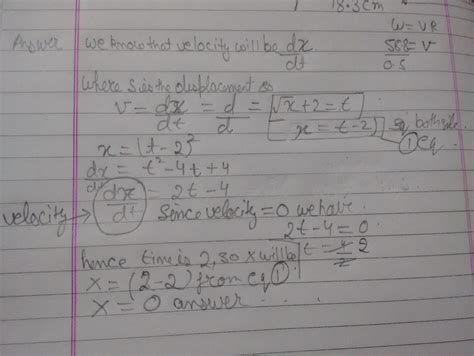 18.3cm
W = VR
Answer we know that velocity will be dx/dt
588 = V
0.5
where s is the displacement so
V = dx/dt = d/d = √x + 2 = t
x = t - 2) sq both side
① eq
x = (t - 2)²
dx = t² - 4t + 4
dt
velocity → dx/dt = 2t - 4
Sence velocity = 0 we have
2t - 4 = 0
t = 4/2 2
hence time is 2, so x will be
x = (2 - 2) from eq ①
x = 0 answer